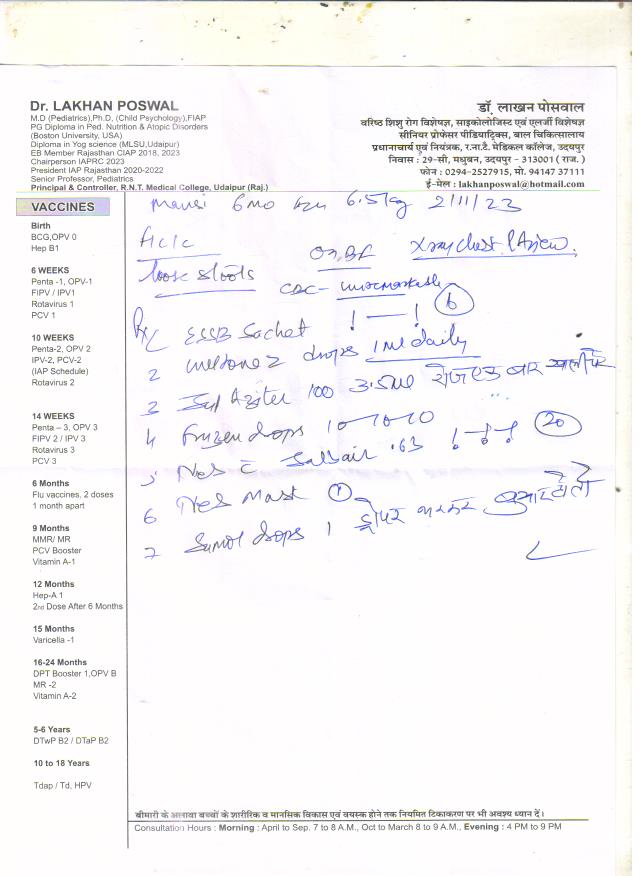 Dr. LAKHAN POSWAL
M.D (Pediatrics),Ph.D, (Child Psychology),FIAP
PG Diploma in Ped. Nutrition & Atopic Disorders
(Boston University, USA)
Diploma in Yog science (MLSU,Udaipur)
EB Member Rajasthan CIAP 2018, 2023
Chairperson IAPRC 2023
President IAP Rajasthan 2020-2022
Senior Professor, Pediatrics
Principal & Controller, R.N.T. Medical College, Udaipur (Raj.)
डॉ. लाखन पोसवाल
वरिष्ठ शिशु रोग विशेषज्ञ, साइकोलोजिस्ट एवं एलर्जी विशेषज्ञ
सीनियर प्रोफेसर पीडियाट्रिक्स, बाल चिकित्सालय
प्रधानाचार्य एवं नियंत्रक, र.ना.टै. मेडिकल कॉलेज, उदयपुर
निवास : 29-सी, मधुबन, उदयपुर - 313001 ( राज. )
फोन : 0294-2527915, मो. 94147 37111
ई-मेल : lakhanposwal@hotmail.com
VACCINES
Birth
BCG,OPV 0
Hep B1
6 WEEKS
Penta -1, OPV-1
FIPV / IPV1
Rotavirus 1
PCV 1
10 WEEKS
Penta-2, OPV 2
IPV-2, PCV-2
(IAP Schedule)
Rotavirus 2
14 WEEKS
Penta – 3, OPV 3
FIPV 2 / IPV 3
Rotavirus 3
PCV 3
6 Months
Flu vaccines, 2 doses
1 month apart
9 Months
MMR/ MR
PCV Booster
Vitamin A-1
12 Months
Hep-A 1
2nd Dose After 6 Months
15 Months
Varicella -1
16-24 Months
DPT Booster 1,OPV B
MR -2
Vitamin A-2
5-6 Years
DTwP B2 / DTaP B2
10 to 18 Years
Tdap / Td, HPV
Mansi 6 mo 6.5 kg 2/11/23
On BF Xray chest PA view
loose stools
CBC- unremarkable
Rx ESSB Sachet 1—1 6
2 drops 1 ml daily
3 Syp Aziter 100 3.5ml रोज एक बार खाली पेट
4 drops 10-10-10
5 Neb c Salbair .63 20
6 Neb Mask 1
7 Sumol drops 1 ड्रोपर भरकर बुखार हो तो
बीमारी के अलावा बच्चों के शारीरिक व मानसिक विकास एवं वयस्क होने तक नियमित टिकाकरण पर भी अवश्य ध्यान दें।
Consultation Hours : Morning : April to Sep. 7 to 8 A.M., Oct to March 8 to 9 A.M., Evening : 4 PM to 9 PM